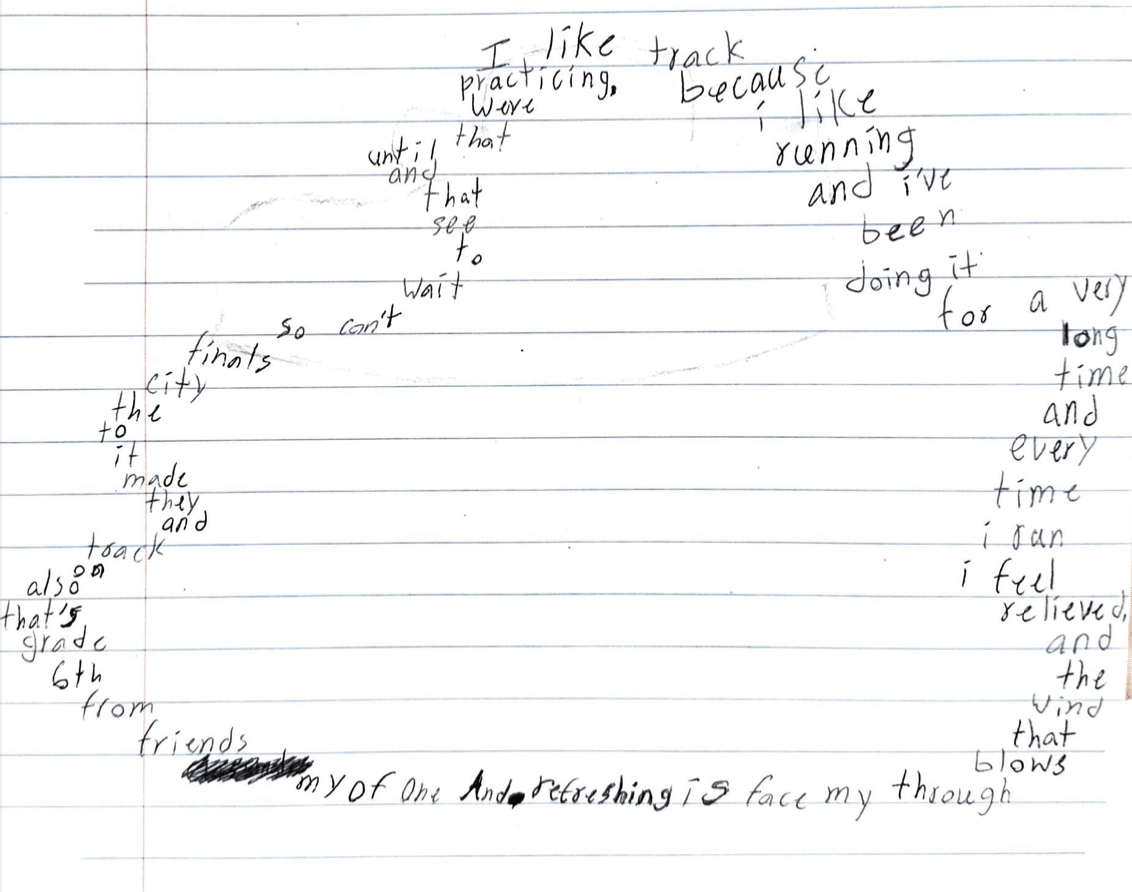 I like track
because
i like
running
and i've
been
doing it
for a very
long
time
and
every
time
i run
i feel
relieved,
and
the
wind
that
blows
through my face is refreshing. And One of my
friends
from
6th
grade
that's
also on
track
and
they
made
it
to
the
city
finals
so can't
wait
to
see
that
and
until
that
Were
practicing.